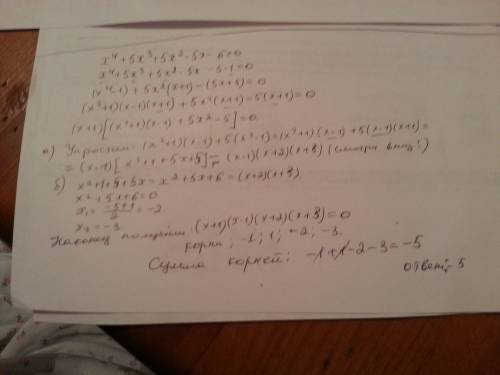 x⁴+5x³+5x²-5x-6=0
x⁴+5x³+5x²-5x-5-1=0
(x⁴-1)+5x²(x+1)-(5x+5)=0
(x²+1)(x-1)(x+1)+5x²(x+1)-5(x+1)=0
(x+1)[(x²+1)(x-1)+5x²-5]=0
а) Упростим: (x²+1)(x-1)+5(x²-1)=(x²+1)(x-1)+5(x-1)(x+1)=
=(x-1)[x²+1+5x+5]=(x-1)(x+2)(x+3) (смотри вниз!)
б) x²+1+5+5x=x²+5x+6=(x+2)(x+3)
x²+5x+6=0
x₁=(-5+1)/2=-2
x₂=-3
Наконец получим: (x+1)(x-1)(x+2)(x+3)=0
корни: -1; 1; -2; -3.
Сумма корней: -1+1-2-3=-5
Ответ: -5